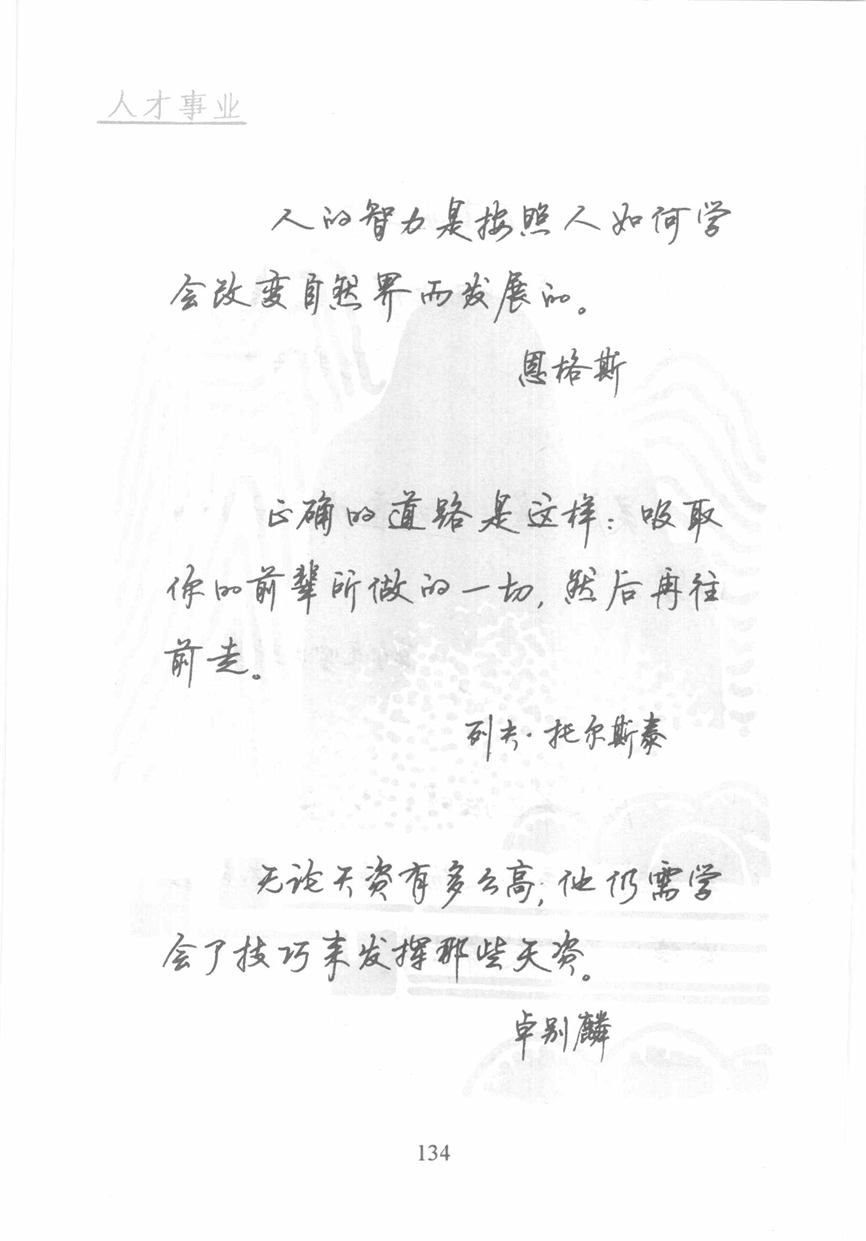 人才事业
人的智力是按照人如何学
会改变自然界而发展的。
恩格斯
正确的道路是这样：吸取
你的前辈所做的一切，然后再往
前走。
列夫·托尔斯泰
无论天资有多么高；他仍需学
会了技巧来发挥那些天资。
卓别麟
134